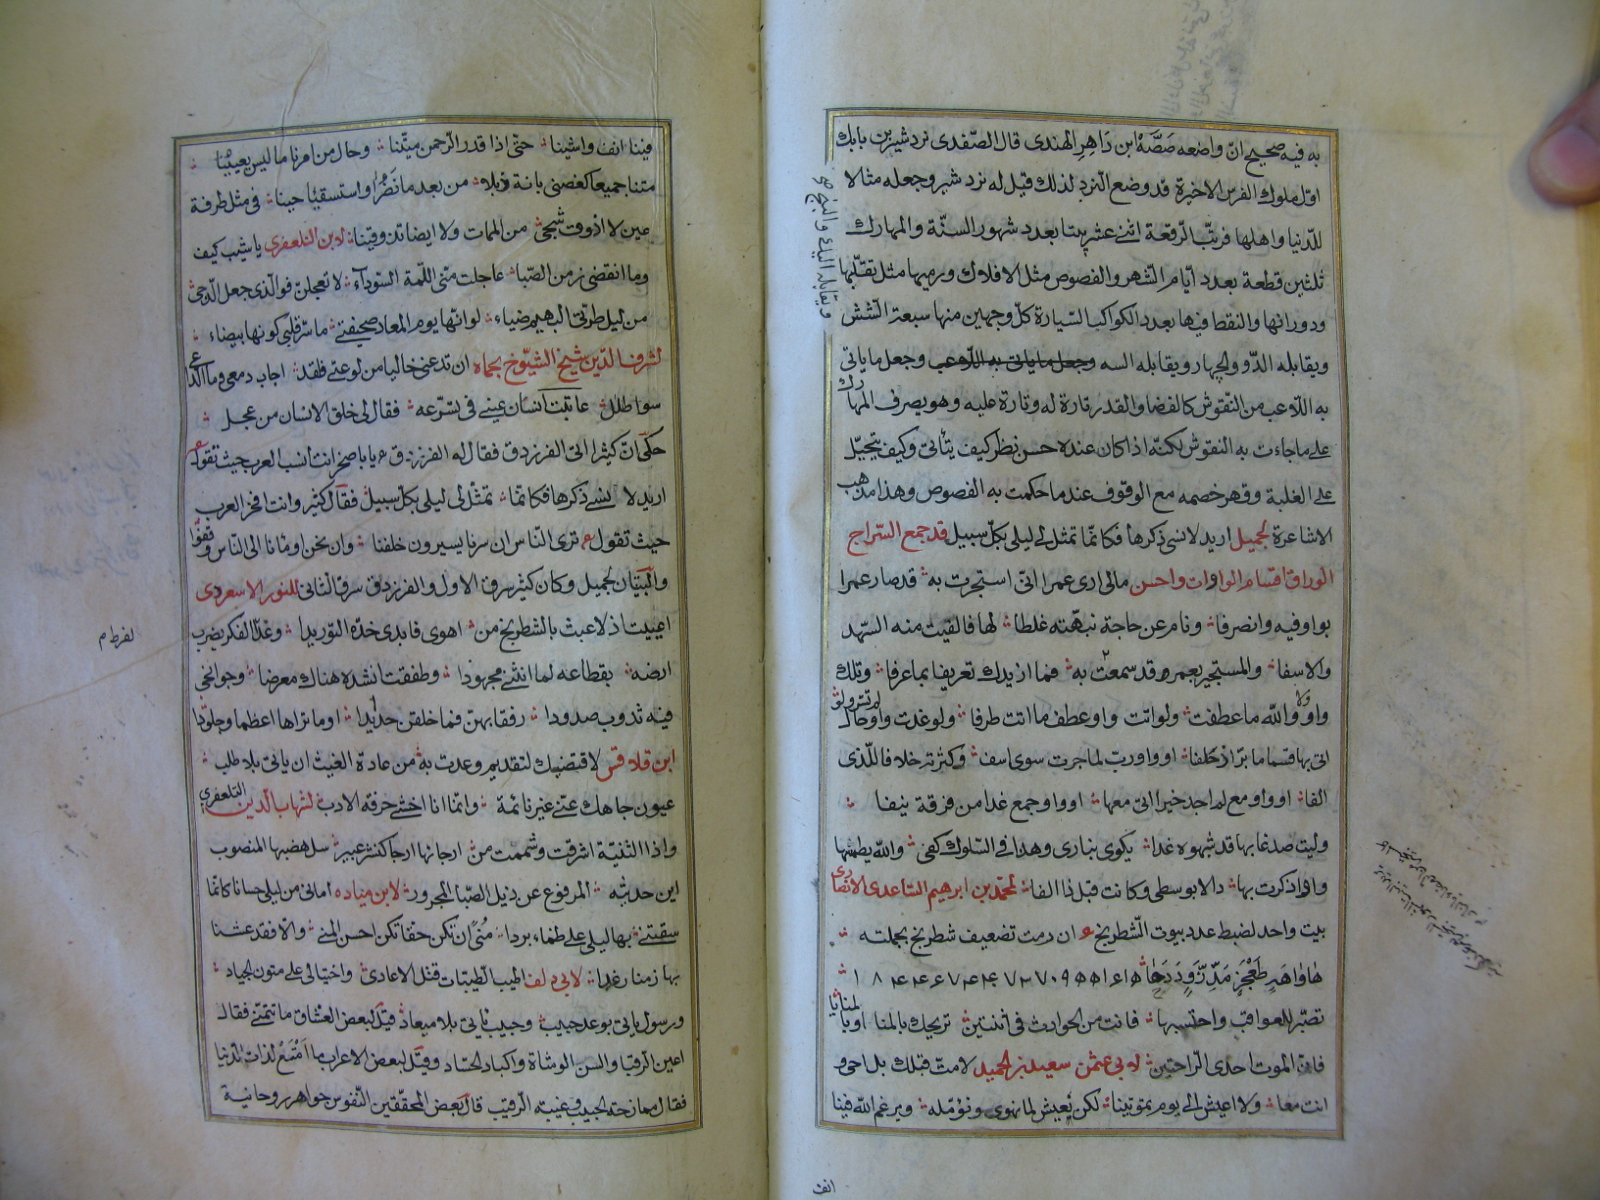 به فيه صحيح انّ واضعه صَصَّهْ ابن دَاهِرِ الهندى قال الصّفدى نرد شير بن بابك
اوّل ملوك الفرس الاخيرة قد وضع النرد لذلك قيل له نرد شير وجعله مثالا
للدّنيا واهلها فرتّب الرّقعة اثنى عشر بيتا بعدد شهور السنّة والمهارك
ثلثين قطعة بعدد ايّام الشّهر والفصوص مثل الافلاك ورميها مثل تقلّبها
ودورانها والنقط فيها بعدد الكواكب السّيارة كلّ وجهين منها سبعة الشش
ويقابله اليك والبنج
ويقابله الدّو والجهار ويقابله السه وجعل ما ياتى به اللّاعب وجعل ما ياتى
به اللّاعب من النّقوش كالقضا والقدر تارة له وتارة عليه وهو يصرف المهارك
على ما جاءت به النقوش لكنّه اذا كان عنده حسن نظر كيف يتأنّى وكيف يتحيّل
على الغلبة وقهر خصمه مع الوقوف عند ما حكمت به الفصوص وهذا مذهب
الاشاعرة لجميل اريد لانسى ذكرها فكانّما تمثل لى ليلى بكلّ سبيل قد جمع السّراج
الوراق اقسام الواوات واحسن مالى ارى عمرا انّى استجرت به قد صار عمرا
بواو فيه وانصرفا ونام عن حاجة نبهّته غلطا لها فالقيت منه السّهد
والاسفا والمستجير بعمرو قد سمعت به فما ازيدك تعريفا بما عرفا وتلك
واو ولا والله ما عطفت ولو اتت واو عطف ما اتت طرفا ولو غدت واو حال لم تسر ولو
اتى بها قسما ما برّ اذ حلفا او واو ربّ لما جرت سوى اسف وكثرته خلافا للّذى
الفا او واو مع لم اجد خيرا اتى معها او واو جمع غدا من فرقة ينفا
وليت صدغا بها قد شبهوه غدا يكوى بنارى وهذا فى السّلوك كفى والله يطمسها
واوا ذكرت بها دالا بوسطى وكانت قبل ذا الفا لمحمّد بن ابرهيم الساعدى الانصارى
بيت واحد لضبط عدد بيوت الشّطرنج ان رمت تضعيف شطرنج بجملته
هَا وَاهَهٍ طَعْجَزٍ مَدٍّ زَّوٍدَ دَحَا ١ ٨ ٤ ٤ ٦ ٧ ٤ ٤ ٠ ٧ ٣ ٧ ٠ ٩ ٥ ٥ ١ ٦ ١ ٥
تصبّر للعواقب واحتسبها فانت من الحوادث فى اثنتين تريحك بالمنا او بالمنايا
فانّ الموت احدى الرّاحتين لابى عثمن سعيد بن الحميد لا متّ قبلك بل احى و
انت معا ولا اعيش الى يوم تموتينا لكن نعيش لما نهوى ونؤمّله ويرغم الله فينا
انف
فينا انف واشينا حتّى اذا قدر الرّحمن ميتّنا وحال من امرنا ما ليس يعيينا
متنا جميعا كغصنى بانة ذبلا من بعد ما نَضُرا واستسقيا حينا فى مثل طرفة
عين لا اذوق شجى من الممات ولا ايضا تذوقينا لابن التلعفرى يا شيب كيف
وما انقضى زمن الصّبا عاجلت منّى اللّمة السّوداء لا تعجلن فو الذى جعل الدّجى
من ليل طرّتى البهيم ضياء لو انّها يوم المعاد صحيفتى ما سّر قلبى كونها بيضاء
لشرف الدّين شيخ الشيّوخ بحماه ان تدعنى خاليا من لوعتى فلقد اجاب دمعى وما الدّاعى
سوا طلل عاتبت انسان عينى فى تسّرعه فقال لى خلق الانسان من عجل
حكى انّ كثيرا اتى الفرزدق فقال له الفرزدق يا با صخر انت انسب العرب حيث تقول
اريد لا نسى ذكرها فكانّما تمثّل لى ليلى بكلّ سبيل فقال كثير وانت افخر العرب
حيث تقول ترى النّاس ان سرنا يسيرون خلفنا وان نحن اومأنا الى النّاس وقفّوا
والبيتان لجميل وكان كثير سرق الاول والفرزدق سرق الثانى للنور الاسعردى
اعييت اذ لاعبت بالشطرنج من اهوى فابدى خدّه التوريدا وغدا لفكر يضرب
لفرط م
ارضه بقطاعه لما انثنى مجهودا وطفقت انشده هناك معرضا وجوانحى
فيه تذوب صدودا رفقا بهن فما خلقن حديدا او ما تراها اعظما وجلودا
ابن قلاقس لا اقتضيك لتقديم وعدت به من عادة الغيث ان ياتى بلا طلب
عيون جاهك عنّى غير نائمة وانّما انا اخشى حرفة الادب لشهاب الدّين التلعفرى
واذا الثنيّة اشرقت وشممت من ارجائها ارجا كنشر عبير سل هضبها المنصوب
اين حديثه المرفوع عن ذيل الصّبا المجرور لابن مياده امانى من ليلى حسانا كانّما
سقتنى بها ليلى على ظماء بردا منًى ان تكن حقّا تكن احسن المنى والا فقد عشنا
بها زمنا رغدا لابى دلف اطيب الطيبات قتل الاعادى واختيالى على متون الجياد
ورسول ياتى بوعد حبيب وحبيب ياتى بلا ميعاد قيل لبعض العشاق ما تتمنّى فقال
اعين الرقبا والسن الوشاة واكباد الحسّاد وقيل لبعض الاعراب ما امتع لذات الدنيا
فقال ممازحة الحبيب وغيبة الرقيب قال بعض المحقّقين النّفوس جواهر روحانية